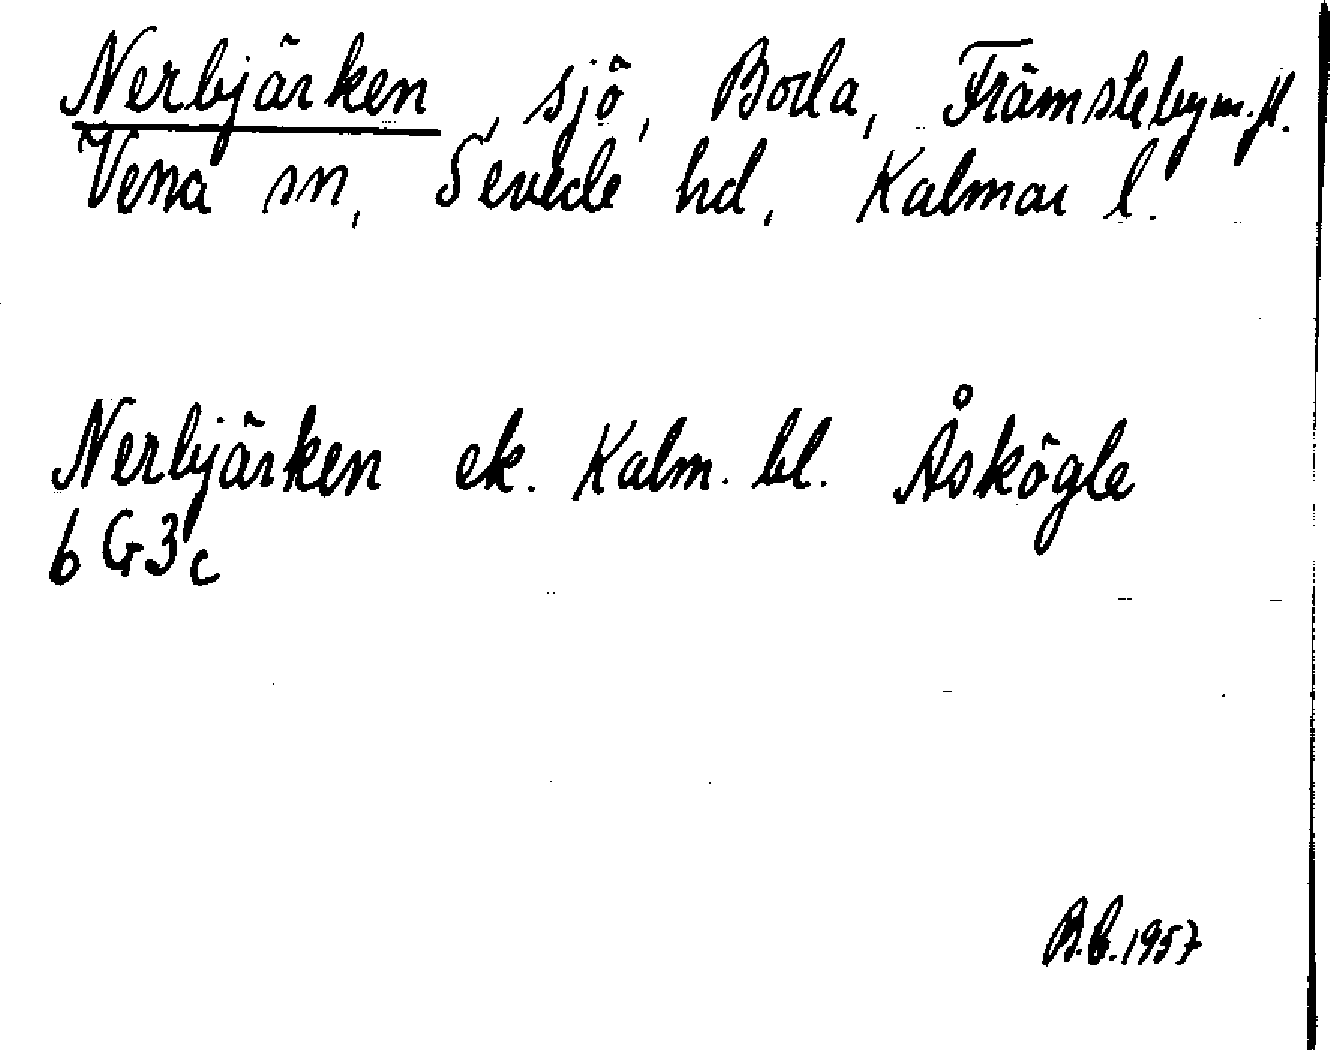 Nerbjärken, sjö, Boda, Främsteby m.fl.
Vena sn, Sevede hd, Kalmar l.
Nerbjärken ek. Kalm. bl. Åskögle
6 G3c
B.C. 1957